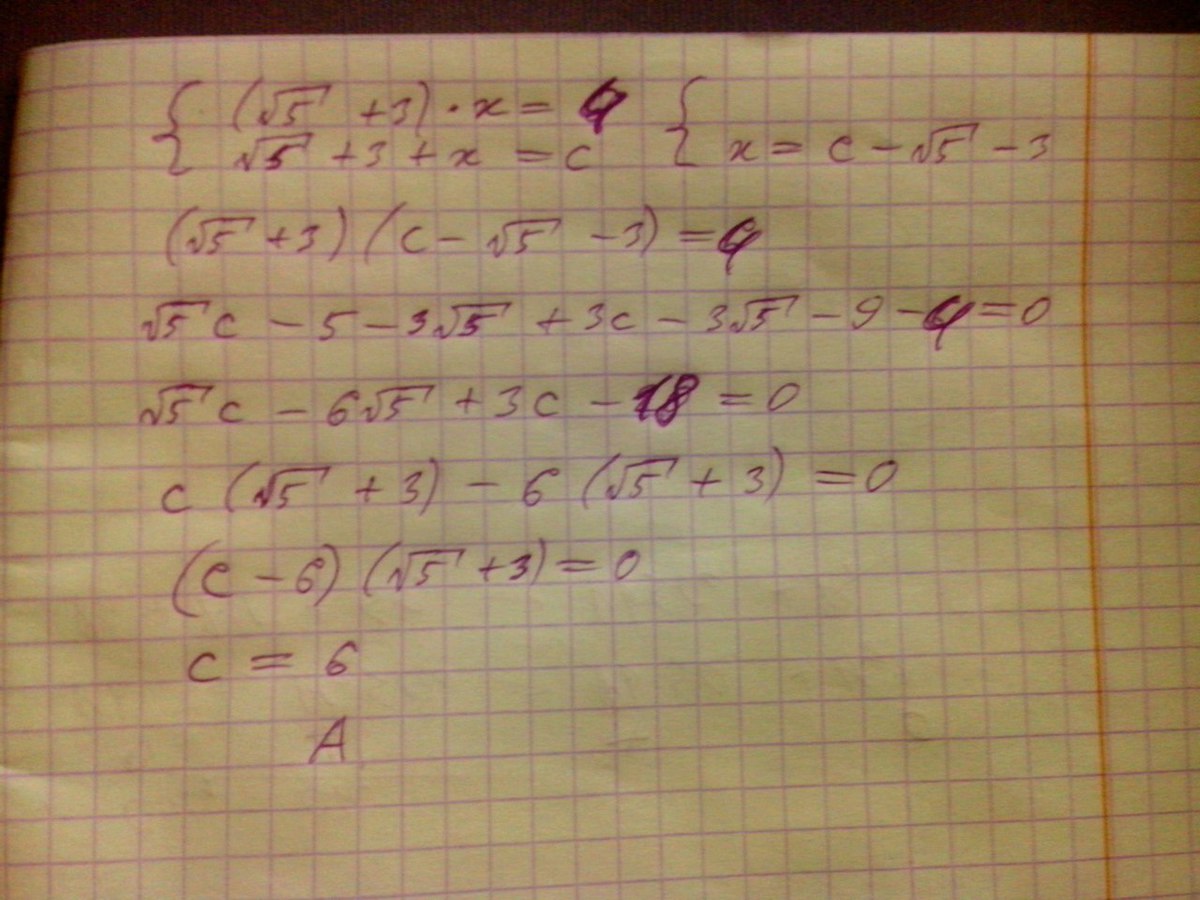 { (√5 + 3) · x = 4 {
√5 + 3 + x = c x = c - √5 - 3
(√5 + 3) (c - √5 - 3) = 4
√5 c - 5 - 3√5 + 3c - 3√5 - 9 - 4 = 0
√5 c - 6√5 + 3c - 18 = 0
c (√5 + 3) - 6 (√5 + 3) = 0
(c - 6) (√5 + 3) = 0
c = 6
A